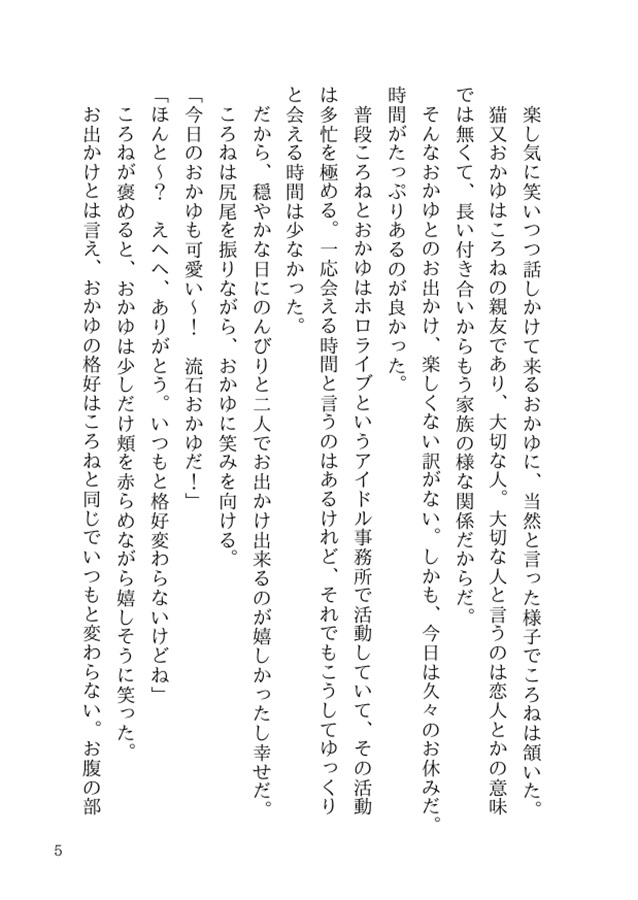 楽し気に笑いつつ話しかけて来るおかゆに、当然と言った様子でころねは頷いた。
猫又おかゆはころねの親友であり、大切な人。大切な人と言うのは恋人とかの意味
では無くて、長い付き合いからもう家族の様な関係だからだ。
そんなおかゆとのお出かけ、楽しくない訳がない。しかも、今日は久々のお休みだ。
時間がたっぷりあるのが良かった。
普段ころねとおかゆはホロライブというアイドル事務所で活動していて、その活動
は多忙を極める。一応会える時間と言うのはあるけれど、それでもこうしてゆっくり
と会える時間は少なかった。
だから、穏やかな日にのんびりと二人でお出かけ出来るのが嬉しかったし幸せだ。
ころねは尻尾を振りながら、おかゆに笑みを向ける。
「今日のおかゆも可愛い〜！　流石おかゆだ！」
「ほんと〜？　えへへ、ありがとう。いつもと格好変わらないけどね」
ころねが褒めると、おかゆは少しだけ頬を赤らめながら嬉しそうに笑った。
お出かけとは言え、おかゆの格好はころねと同じでいつもと変わらない。お腹の部
5